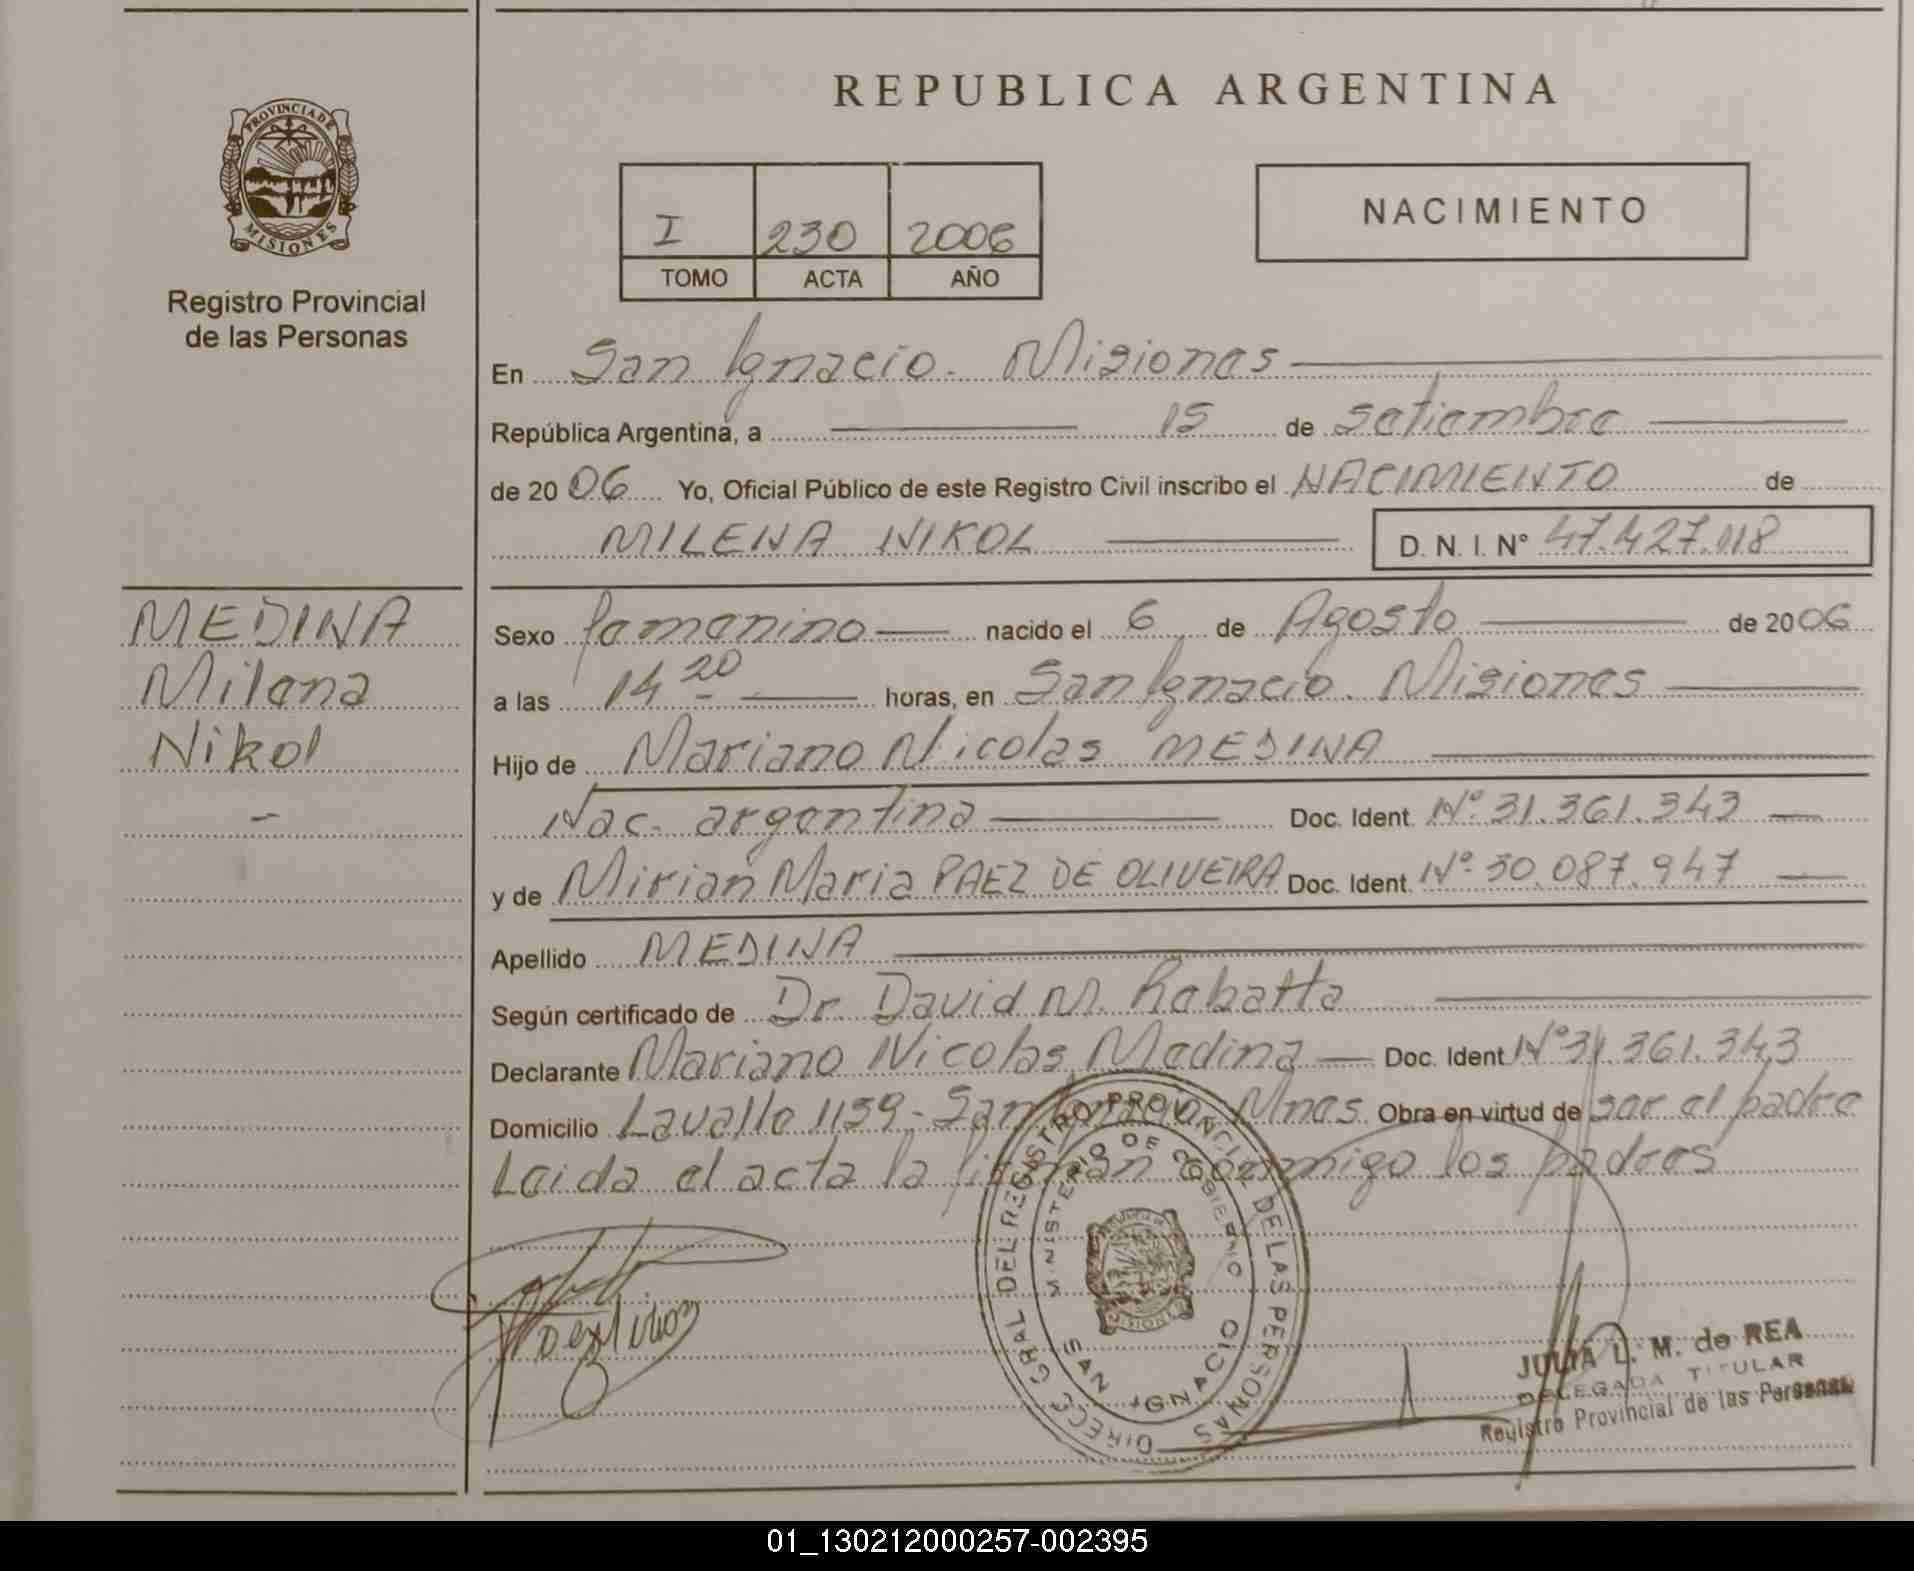 REPUBLICA ARGENTINA
PROVINCIA DE
MISIONES
Registro Provincial
de las Personas
I 230 2006
TOMO ACTA AÑO
NACIMIENTO
En San Ignacio. Misiones
República Argentina, a 15 de setiembre
de 20 06 Yo, Oficial Público de este Registro Civil inscribo el NACIMIENTO de
MILENA NIKOL D. N. I. Nº 47.427.118
MEDINA
Milena
Nikol
Sexo femenino nacido el 6 de Agosto de 20 06
a las 14 20 horas, en San Ignacio. Misiones
Hijo de Mariano Nicolas MEDINA
Nac. argentina Doc. Ident. Nº 31.361.343
y de Mirian Maria PAEZ DE OLIVEIRA Doc. Ident. Nº 30.087.947
Apellido MEDINA
Según certificado de Dr. David M. Rabatta
Declarante Mariano Nicolas Medina Doc. Ident. Nº 31.361.343
Domicilio Lavalle 1159 - San Ignacio Mnes. Obra en virtud de ser el padre
Leida el acta la firman conmigo los padres
DIRECC GRAL DEL REGISTRO PROVINCIAL DE LAS PERSONAS
MINISTERIO DE GOBIERNO
SAN IGNACIO
JULIA L. M. de REA
DELEGADA TITULAR
Registro Provincial de las Personas
01_130212000257-002395